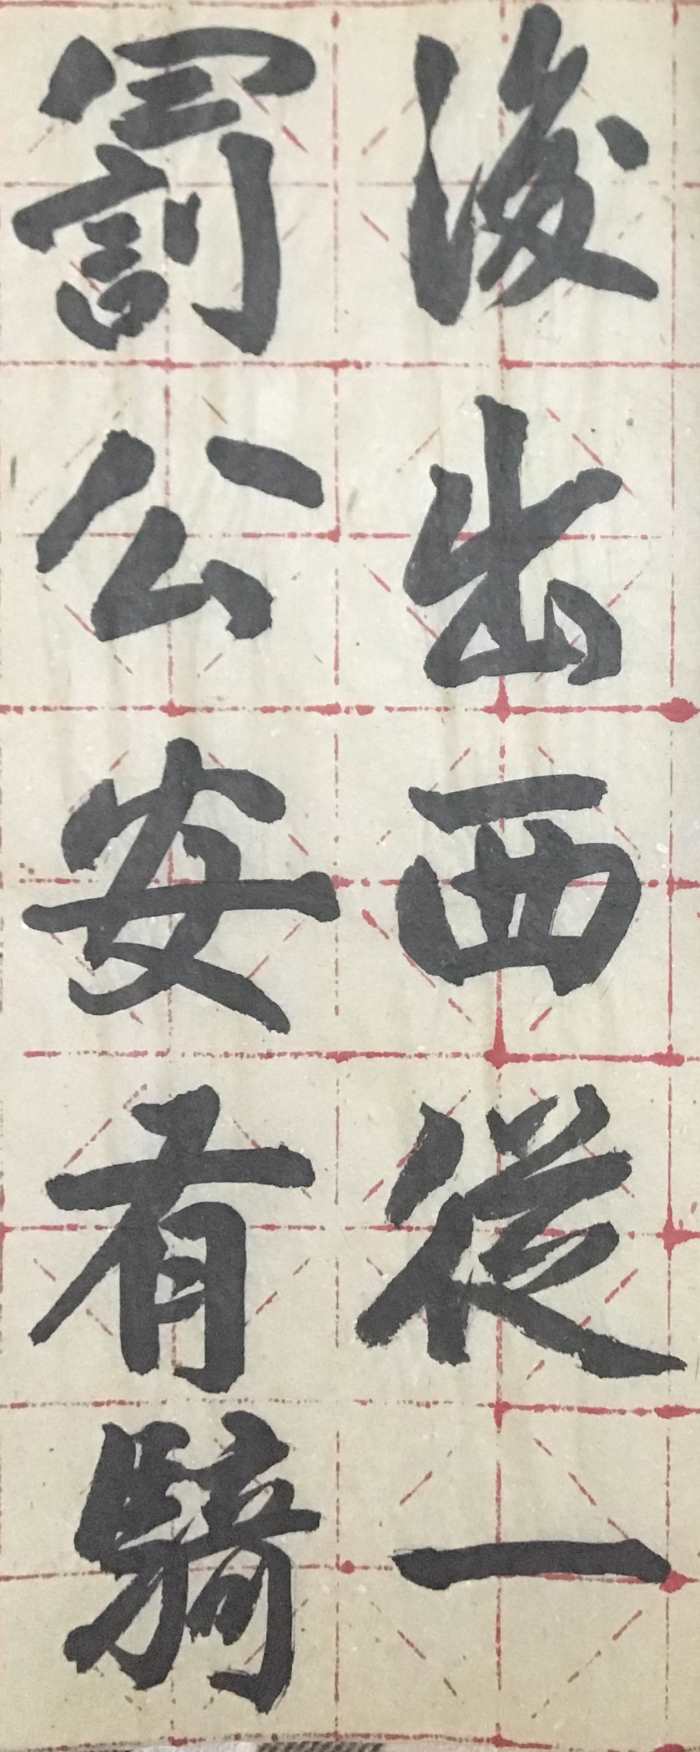 後出西從一
罰公安有騎